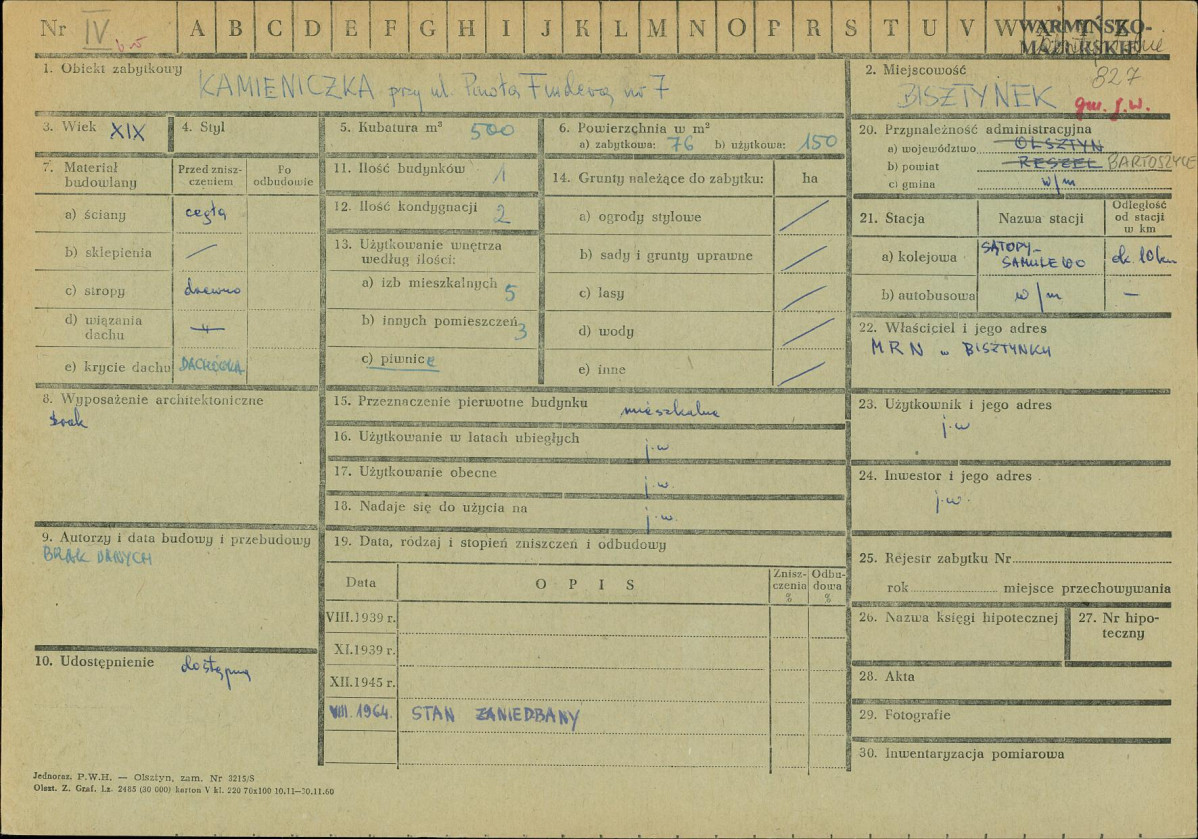 Nr IV A B C D E F G H I J K L M N O P R S T U V W X Y Z
WARMIŃSKO-
MAZURSKIE
827
1. Obiekt zabytkowy
KAMIENICZKA przy ul. Piotra Findera nr 7
2. Miejscowość
BISZTYNEK gm. j.w.
3. Wiek XIX
4. Styl
5. Kubatura m³ 500
6. Powierzchnia w m²
a) zabytkowa: 76 b) użytkowa: 150
7. Materiał budowlany
Przed znisz-
czeniem
Po
odbudowie
a) ściany cegła
b) sklepienia /
c) stropy drewno
d) wiązania
dachu -"-
e) krycie dachu DACHÓWKA
8. Wyposażenie architektoniczne
brak
9. Autorzy i data budowy i przebudowy
BRAK DANYCH
10. Udostępnienie dostępny
11. Ilość budynków 1
12. Ilość kondygnacji 2
13. Użytkowanie wnętrza
według ilości:
a) izb mieszkalnych 5
b) innych pomieszczeń 3
c) piwnice
14. Grunty należące do zabytku: ha
a) ogrody stylowe /
b) sady i grunty uprawne /
c) lasy /
d) wody /
e) inne /
15. Przeznaczenie pierwotne budynku mieszkalne
16. Użytkowanie w latach ubiegłych j.w
17. Użytkowanie obecne j.w.
18. Nadaje się do użycia na j.w.
19. Data, rodzaj i stopień zniszczeń i odbudowy
Data OPIS Znisz-
czenia
% Odbu-
dowa
%
VIII.1939 r.
XI.1939 r.
XII.1945 r.
VIII.1964. STAN ZANIEDBANY
20. Przynależność administracyjna
a) województwo OLSZTYN
b) powiat RESZEL BARTOSZYCE
c) gmina w/m
21. Stacja Nazwa stacji Odległość
od stacji
w km
a) kolejowa SĄTOPY-
SAMULEWO ok. 10 km
b) autobusowa w/m —
22. Właściciel i jego adres
MRN w BISZTYNKU
23. Użytkownik i jego adres
j.w
24. Inwestor i jego adres
j.w.
25. Rejestr zabytku Nr
rok miejsce przechowywania
26. Nazwa księgi hipotecznej
27. Nr hipo-
teczny
28. Akta
29. Fotografie
30. Inwentaryzacja pomiarowa
Jednoraz. P.W.H. — Olsztyn, zam. Nr 3215/S
Olszt. Z. Graf. Lz. 2485 (30 000) karton V kl. 220 70x100 10.11—30.11.60